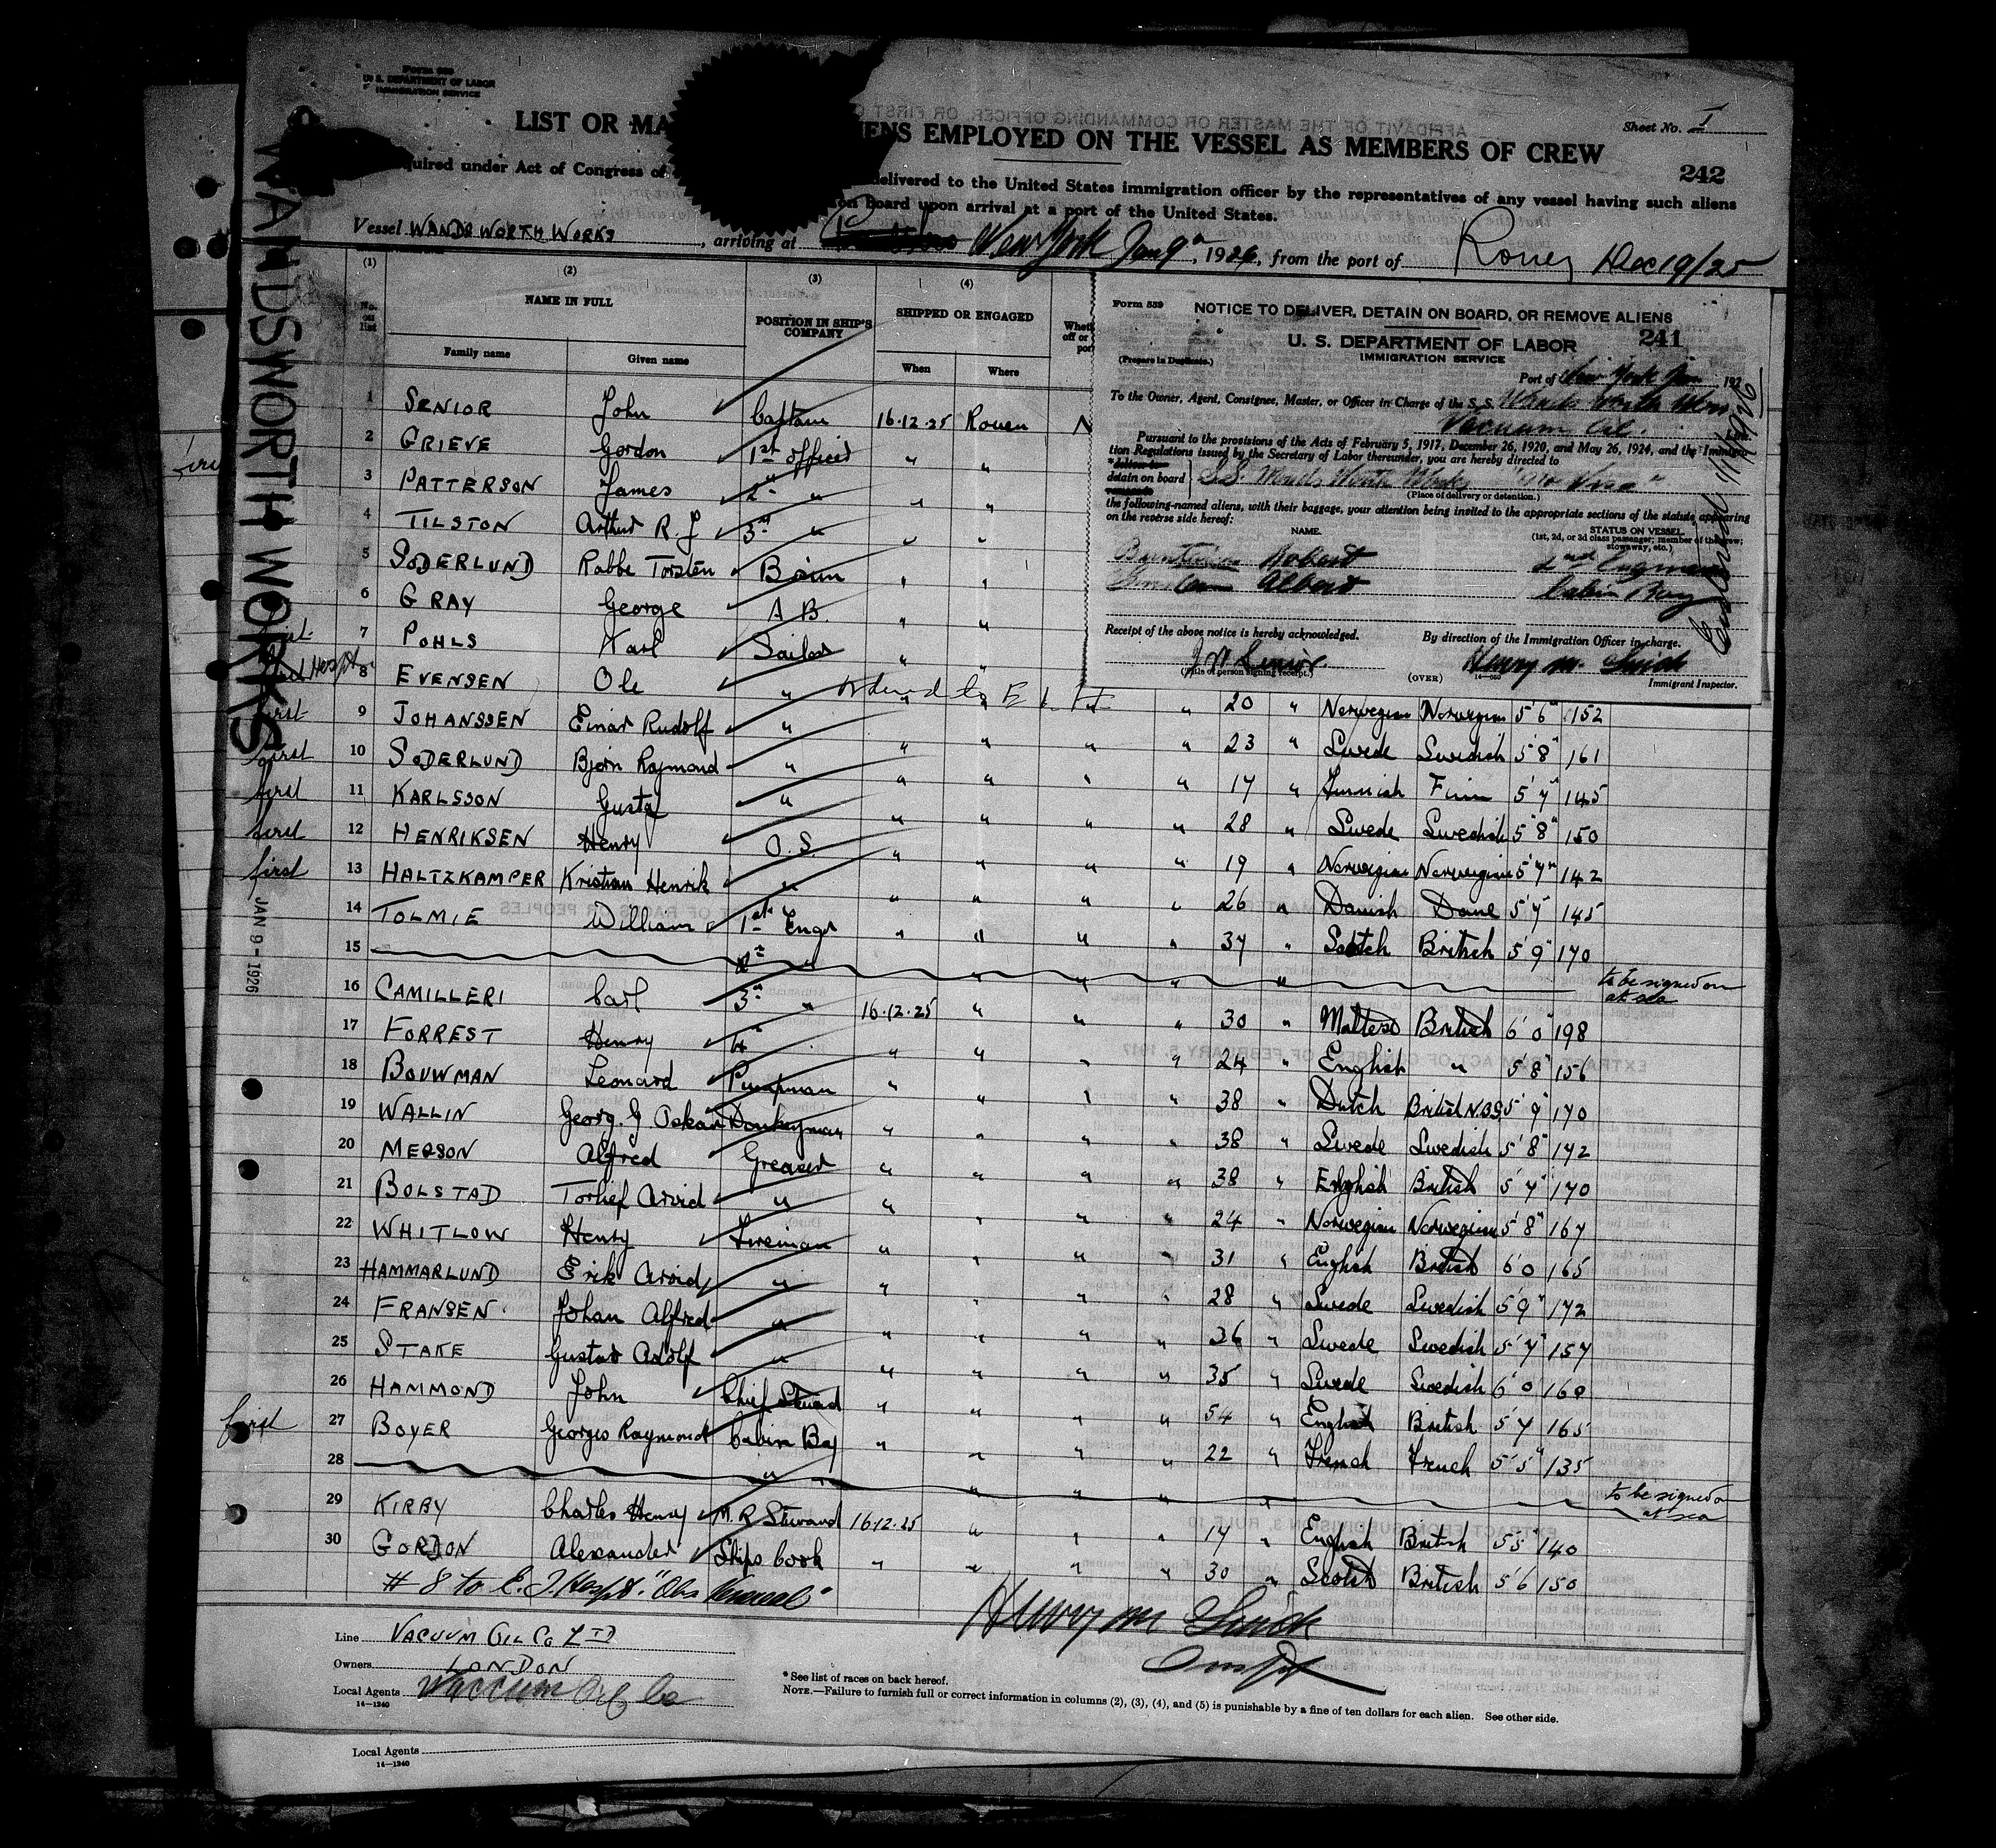 Form 689
U. S. DEPARTMENT OF LABOR
IMMIGRATION SERVICE
Sheet No. I
LIST OR MA ENS EMPLOYED ON THE VESSEL AS MEMBERS OF CREW
242
quired under Act of Congress of delivered to the United States immigration officer by the representatives of any vessel having such aliens
on board upon arrival at a port of the United States.
Vessel WANDSWORTH WORKS, arriving at New York Jan 9, 1926, from the port of Rouen Dec 19/25
WANDSWORTH WORKS
JAN 9 - 1926
(1) (2) (3) (4)
No. on list NAME IN FULL POSITION IN SHIP'S COMPANY SHIPPED OR ENGAGED
Family name Given name When Where
1 SENIOR John Captain 16.12.25 Rouen
2 GRIEVE Gordon 1st officer " "
3 PATTERSON James 2nd " " "
4 TILSTON Arthur R. J 3rd " " "
5 SODERLUND Rabbe Torsten Bosun " "
6 GRAY George A B. " "
7 POHLS Karl Sailor " "
8 EVENSEN Ole " " " " " 20 " Norwegian Norwegian 5'6" 152
9 JOHANSSEN Einar Rudolf " " " " " 23 " Swede Swedish 5'8" 161
10 SODERLUND Bjorn Raymond " " " " " 17 " Finnish Finn 5'7" 145
11 KARLSSON Gustaf " " " " " 28 " Swede Swedish 5'8" 150
12 HENRIKSEN Henry O.S. " " " " 19 " Norwegian Norwegian 5'7" 142
13 HALTZKAMPER Kristian Henrik " " " " " 26 " Danish Dane 5'7" 145
14 TOLMIE William 1st Engr " " " " 37 " Scotch British 5'9" 170
15 2nd " " " " " to be signed on at sea
16 CAMILLERI Carl 3rd " 16.12.25 " " " 30 " Maltese British 6'0" 198
17 FORREST Henry 4th " " " " " 24 " English " 5'8" 156
18 BOUWMAN Leonard Pumpman " " " " 38 " Dutch British N.B.S 5'9" 170
19 WALLIN Georg. G Oskar Donkeyman " " " " 38 " Swede Swedish 5'8" 172
20 MEPSON Alfred Greaser " " " " 38 " English British 5'7" 170
21 BOLSTAD Torlief Arvid " " " " " 24 " Norwegian Norwegian 5'8" 167
22 WHITLOW Henry Fireman " " " " 31 " English British 6'0 165
23 HAMMARLUND Erik Arvid " " " " " 28 " Swede Swedish 5'9" 172
24 FRANSEN Johan Alfred " " " " " 36 " Swede Swedish 5'7" 157
25 STAKE Gustav Adolf " " " " " 35 " Swede Swedish 6'0" 160
26 HAMMOND John Chief Steward " " " " 54 " English British 5'7 165
first 27 BOYER Georges Raymond Cabin Boy " " " " 22 " French French 5'5" 135
28 " " " " " to be signed on at sea
29 KIRBY Charles Henry M.R. Steward 16.12.25 " " " 17 " English British 5'5" 140
30 GORDON Alexander Ships Cook " " " " 30 " Scotch British 5'6 150
# 8 to E. I. Hospt.
Henry M
Line VACUUM OIL CO LTD
Owners LONDON
Local Agents Vaccum Oil Co
14—1240
* See list of races on back hereof.
NOTE.—Failure to furnish full or correct information in columns (2), (3), (4), and (5) is punishable by a fine of ten dollars for each alien. See other side.
Local Agents
14—1240
Form 539
NOTICE TO DELIVER, DETAIN ON BOARD, OR REMOVE ALIENS
241
U. S. DEPARTMENT OF LABOR
IMMIGRATION SERVICE
(Prepare in Duplicate.)
Port of New York Jan 192
To the Owner, Agent, Consignee, Master, or Officer in Charge of the S. S. Wandsworth Works
Vacuum Oil.
Pursuant to the provisions of the Acts of February 5, 1917, December 26, 1920, and May 26, 1924, and the Immigra-
tion Regulations issued by the Secretary of Labor thereunder, you are hereby directed to
detain on board S.S. Wands Worth Works "no Visa"
(Place of delivery or detention.)
the following-named aliens, with their baggage, your attention being invited to the appropriate sections of the statute appearing
on the reverse side hereof:
NAME. STATUS ON VESSEL
(1st, 2d, or 3d class passenger; member of the crew; stowaway, etc.)
Robert 2nd Engineer
Albert Cabin Boy
Receipt of the above notice is hereby acknowledged.
By direction of the Immigration Officer in charge.
Senior
(Title of person signing receipt.)
(OVER)
Henry M.
Immigrant Inspector.